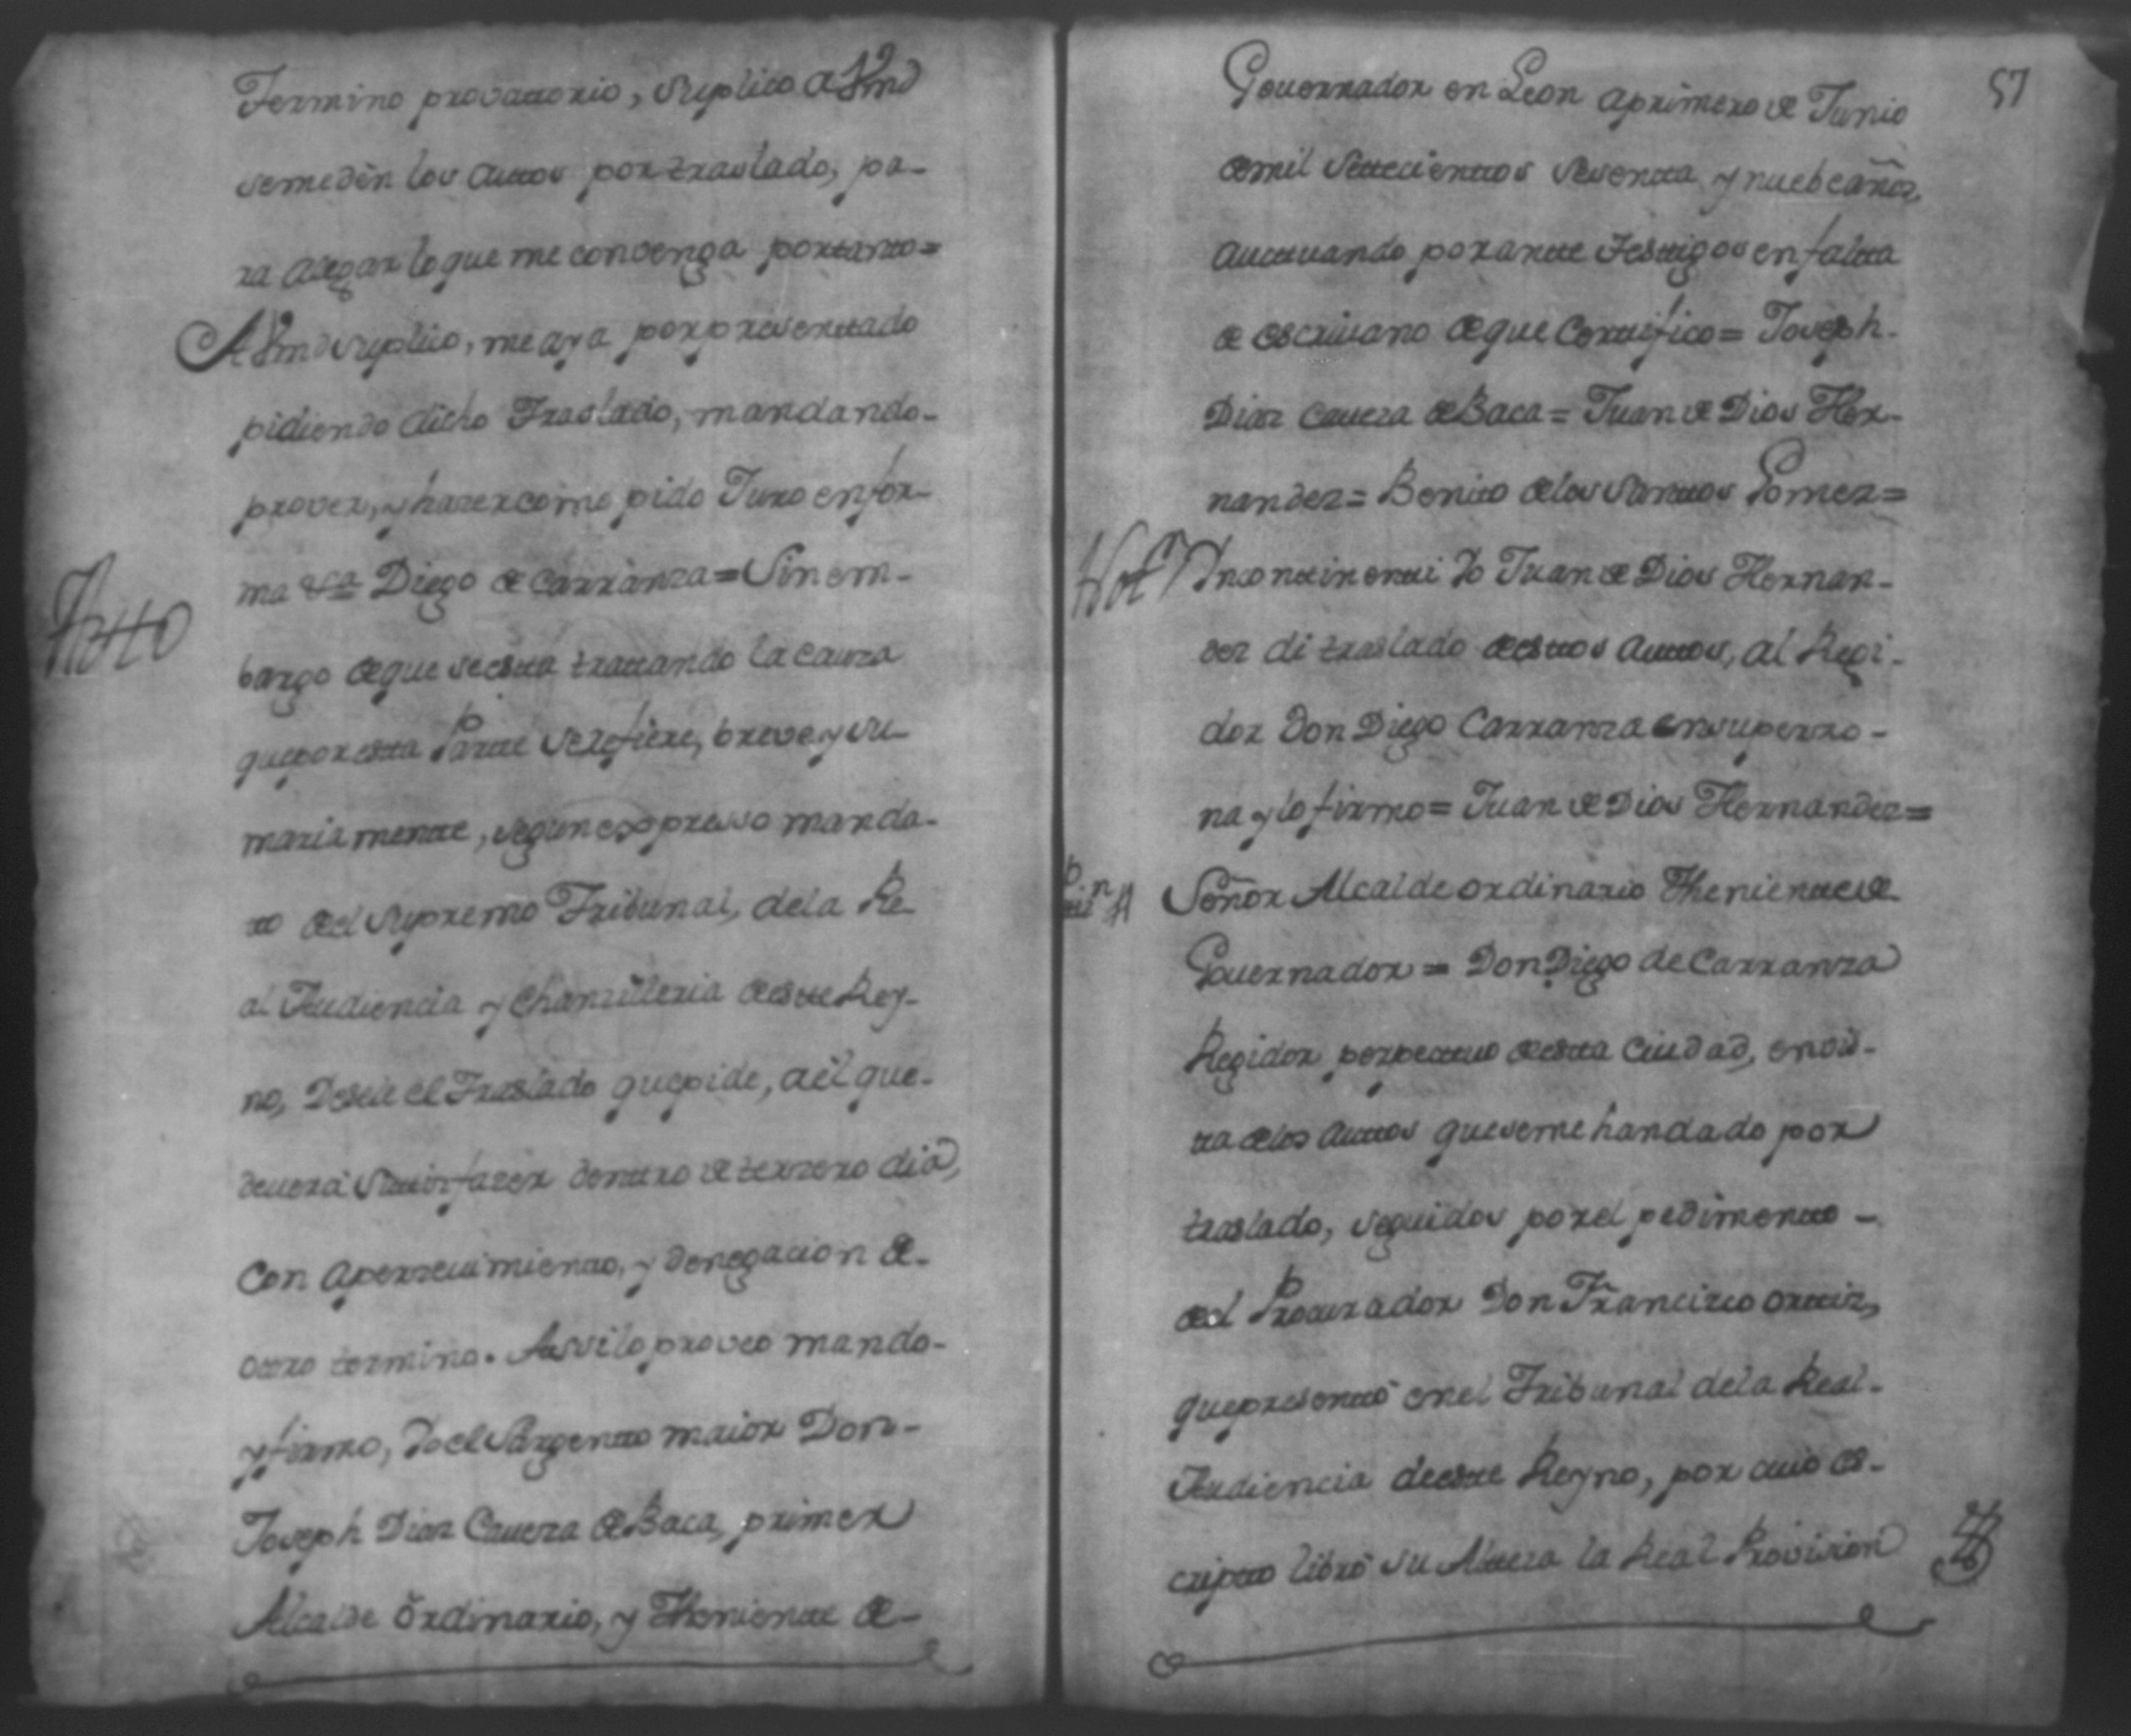 Termino provattorio, Suplico a Vmd
semeden los auttos por traslado, pa-
ra alegar loque me convenga portanto=
A Vmd suplico, me aya por presenttado
pidiendo dicho Traslado, mandando-
prover, y hazer como pido Juro enfor-
ma &ca Diego de Carranza = Sin em-
Autto
bargo deque seestta trattando la cauza
quepor estta Partte serefiere, breve y su-
mariamentte, segun expresso manda-
to del Supremo Tribunal, dela Re-
al Audiencia y Chanzilleria deestte Rey-
no, Desele el Traslado quepide, a él que-
deverá sattisfazer denttro de terzero dia,
Con aperzevimientto, y denegacion de-
ottro termino. Assi lo proveo mando-
y firmo, Yo el Sargentto maior Don-
Joseph Diaz Caveza de Baca, primer
Alcalde ordinario, y Thenientte de-
57
Governador en Leon a primero de Junio
demil settecienttos sesentta y nuebe años,
Actuando por antte Testtigos en faltta
de escrivano deque Certtifico = Joseph-
Diaz Caveza de Baca = Juan de Dios Her-
nandez = Benito delos Santtos Gomez =
Nott.n Yncontinentti Yo Juan de Dios Hernan-
dez di traslado deesttos Auttos, al Regi-
dor Don Diego Carranza ensuperzo-
na y lo firmo = Juan de Dios Hernandez =
Señor Alcalde ordinario Thenientte de
Governador = Don Diego de Carranza
Regidor perpettuo deestta Ciudad, en vis-
ta delos Auttos quesemehandado por
traslado, seguidos por el pedimentto -
del Procurador Don Francisco Orttiz,
quepresenttó en el Tribunal dela Real-
Audiencia deestte Reyno, por cuio es-
cripto libró su Alteza la Real Provision